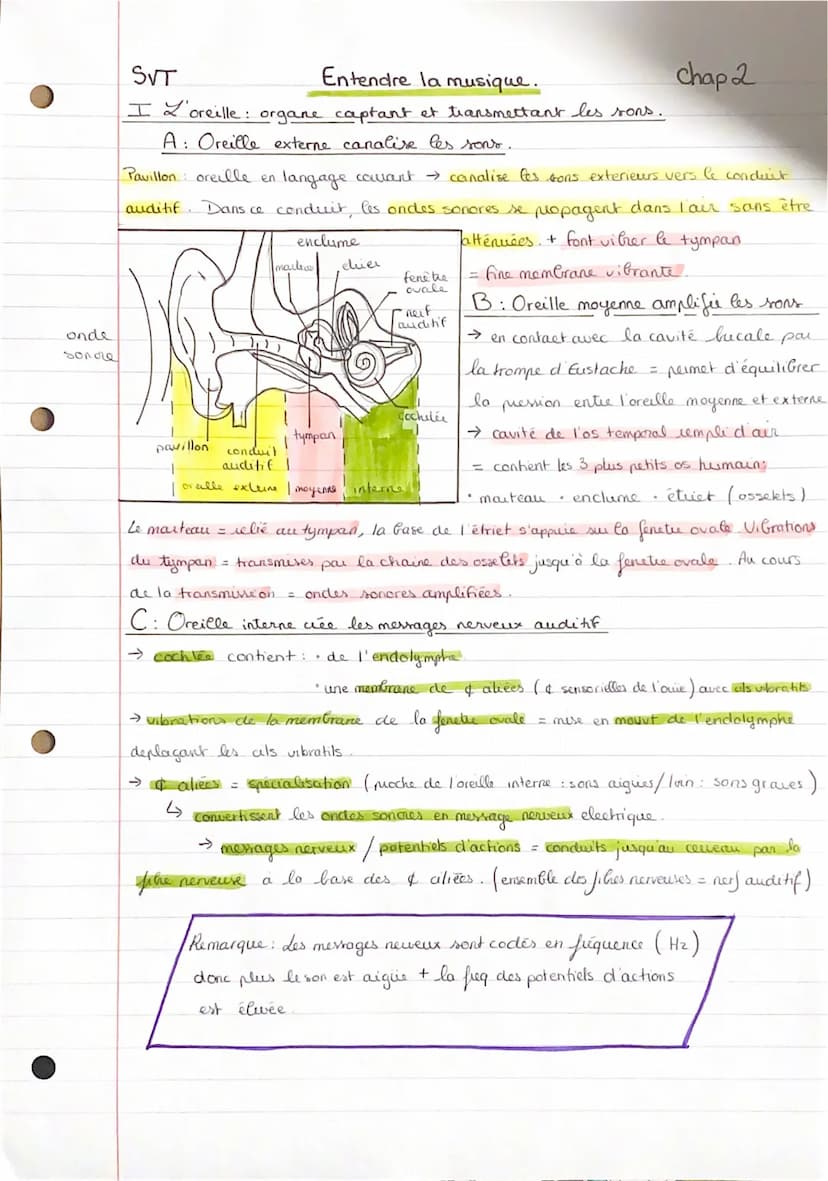 SVT Entendre la musique. Chap 2
I L'oreille : organe captant et transmettant les sons.
A : Oreille externe canalise les sons.
Pavillon : oreille en langage courant → canalise les sons exterieurs vers le conduit
auditif. Dans ce conduit, les ondes sonores se propagent dans l'air sans être
atténuées. + font vibrer le tympan
= fine membrane vibrante.
enclume
marteau
étrier
fenêtre
ovale
nerf
auditif
onde
sonore
cochlée
tympan
pavillon
conduit
auditif
oreille externe | moyenne | interne
B : Oreille moyenne amplifie les sons
→ en contact avec la cavité bucale par
la trompe d'Eustache = permet d'équilibrer
la pression entre l'oreille moyenne et externe
→ cavité de l'os temporal rempli d'air
= contient les 3 plus petits os humain:
• marteau • enclume • étriet (osselets)
Le marteau = relié au tympan, la base de l'étriet s'appuie sur la fenetre ovale Vibrations
du tympan = transmises par la chaine des osselets jusqu'à la fenetre ovale. Au cours
de la transmission = ondes sonores amplifiées.
C : Oreille interne crée les messages nerveux auditif
→ cochlée contient : • de l'endolymphe
• une membrane de ¢ ciliées (¢ sensorielles de l'ouie) avec cils vibratils
→ vibrations de la membrane de la fenetre ovale = mise en mouvt de l'endolymphe
deplaçant les cils vibratils.
→ ¢ ciliées = spécialisation (proche de l'oreille interne : sons aigües / loin : sons graves)
↳ convertissent les ondes sonores en message nerveux electrique.
→ messages nerveux / potentiels d'actions = conduits jusqu'au cerveau par la
fibre nerveuse à la base des ¢ ciliées. (ensemble des fibres nerveuses = nerf auditif)
Remarque : Les messages nerveux sont codés en fréquence (Hz)
donc plus le son est aigüe + la freq des potentiels d'actions
est élevée.